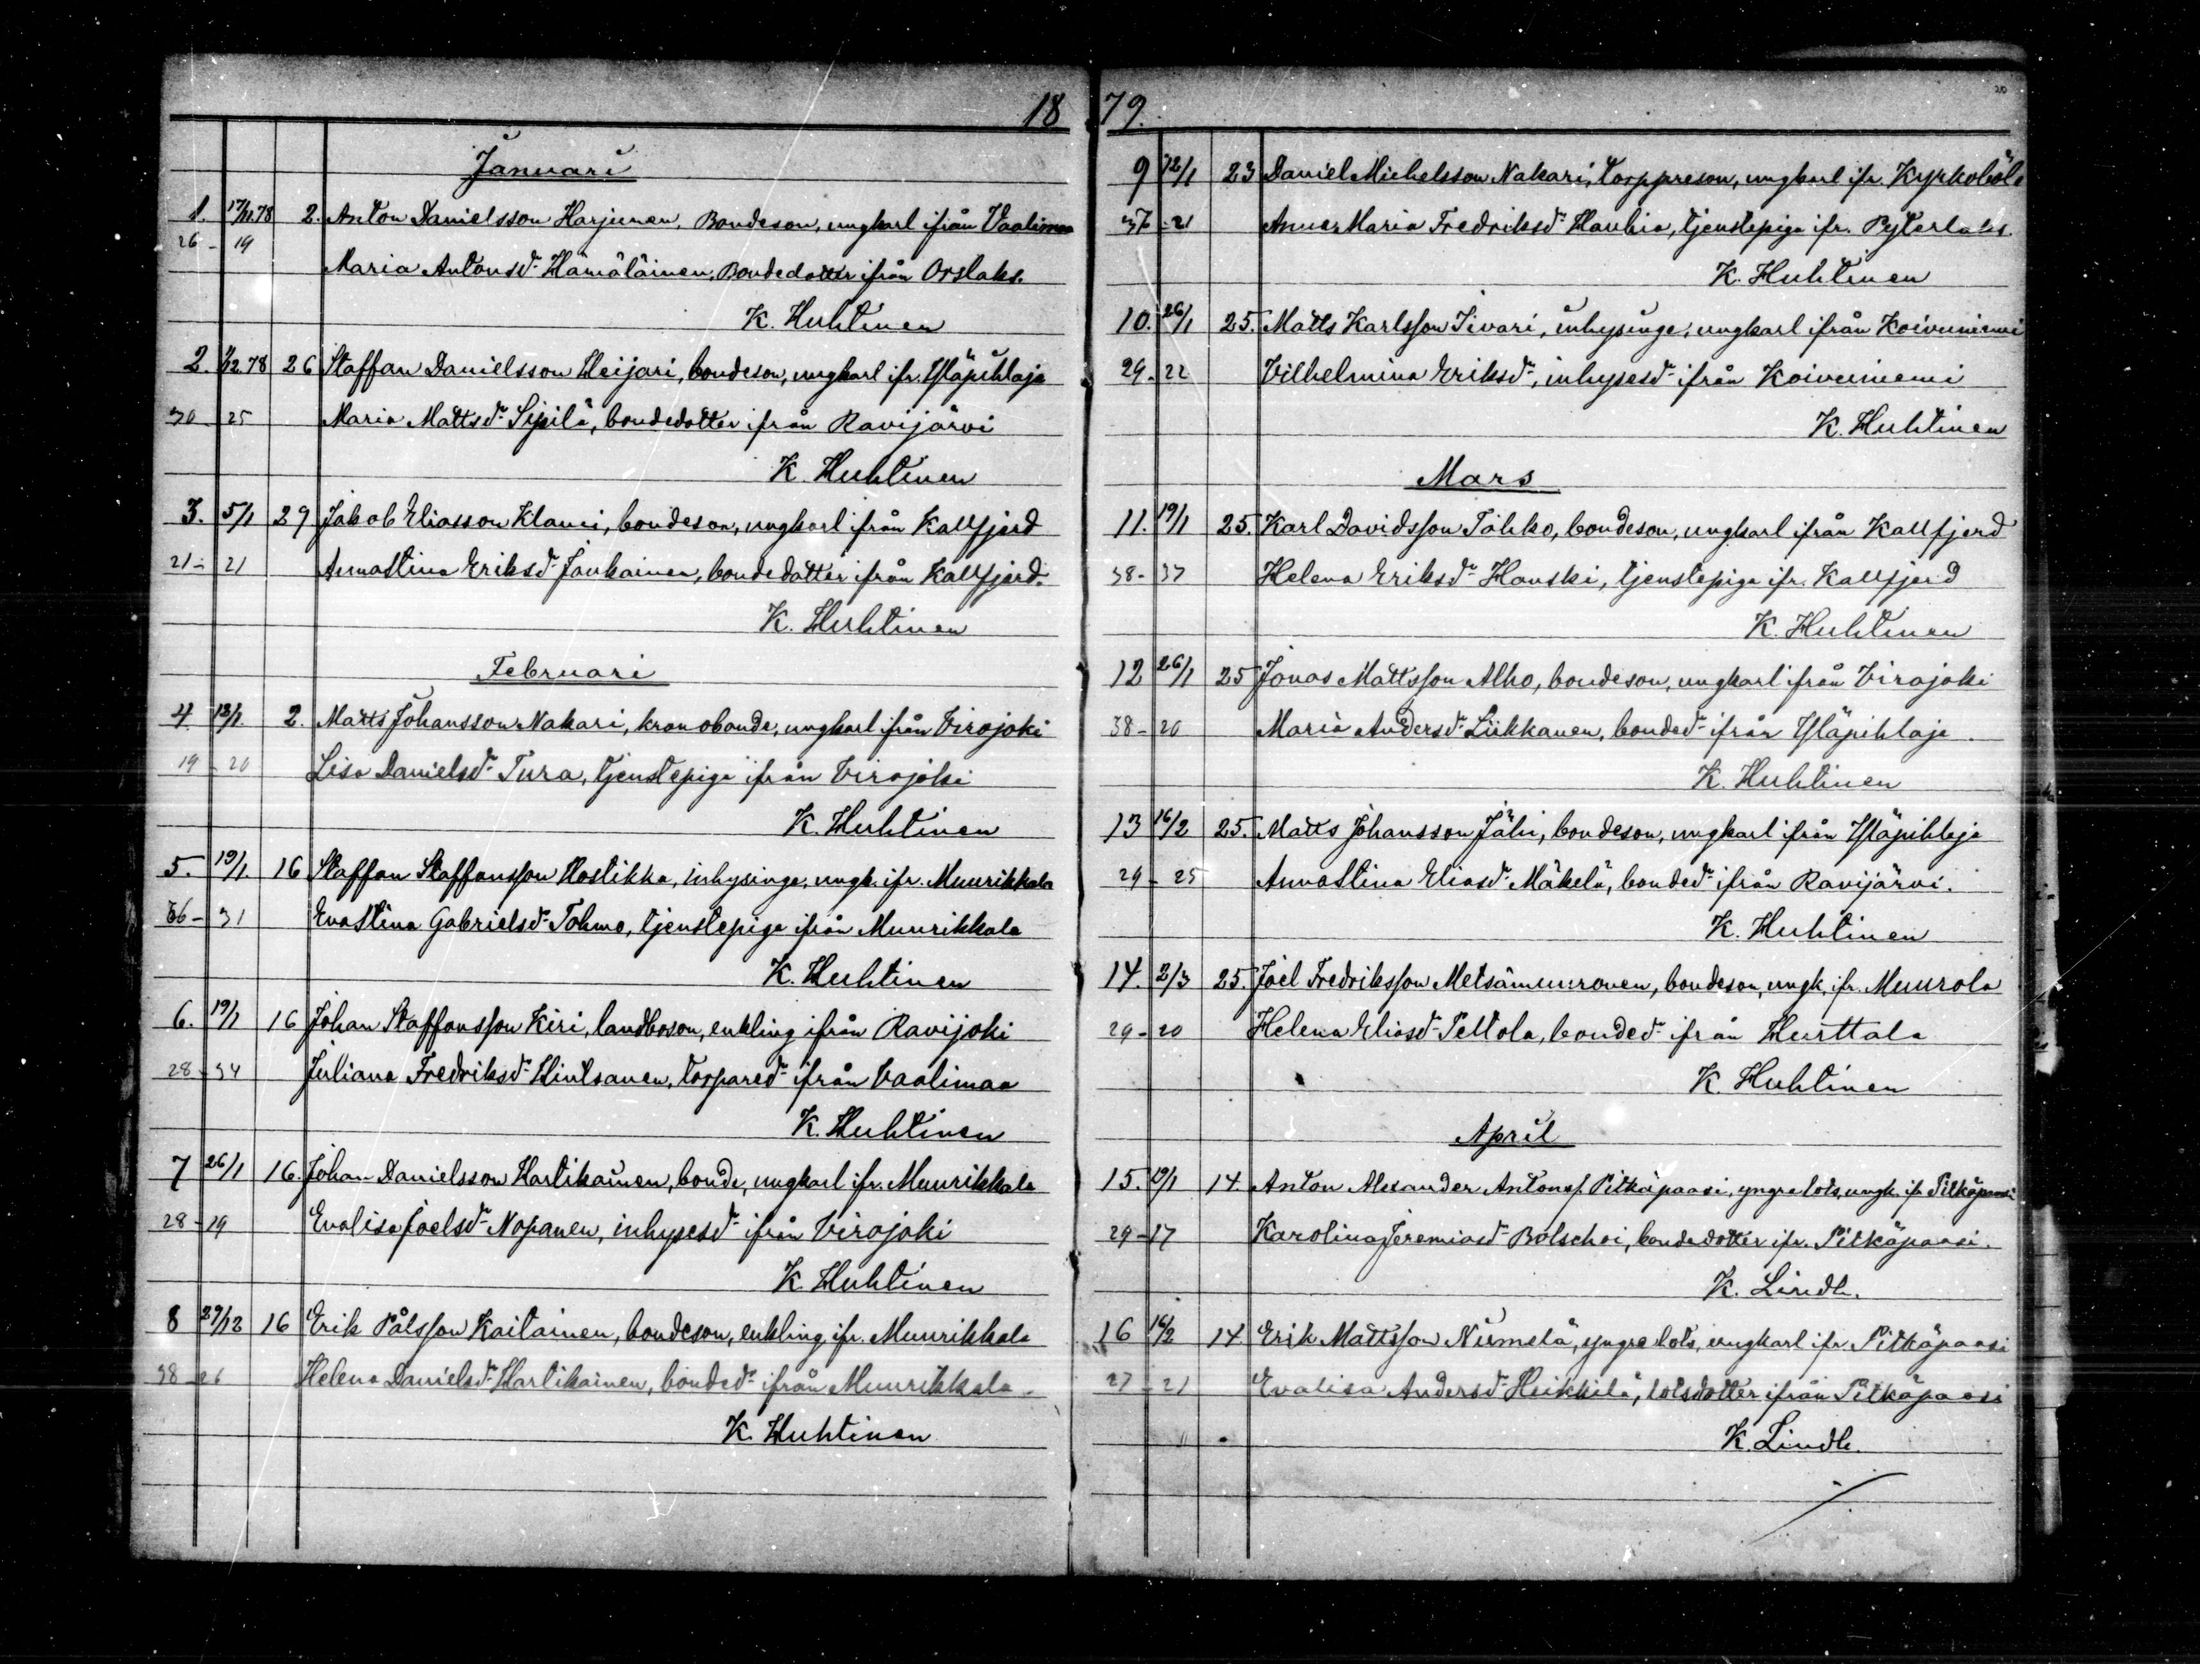 18
Januari
1. 17/11.78 2. Anton Danielsson Harjunen, Bondeson, ungkarl ifrån Vaalimaa
26 - 19 Maria Antonsdr Hämäläinen, Bondedotter ifrån Orslaks.
K. Huhtinen
2. 1/12.78 26 Staffan Danielsson Heijari, bondeson, ungkarl ifr. Yläpihlaja
30 - 25 Maria Mattsdr Sipilä, bondedotter ifrån Ravijärvi
K. Huhtinen
3. 5/1 29 Jakob Eliasson Klami, bondeson, ungkarl ifrån Kallfjerd
21 - 21 Annastina Eriksdr Jaukainen, bondedotter ifrån Kallfjerd.
K. Huhtinen
Februari
4 12/1. 2. Matts Johansson Nakari, kronobonde, ungkarl ifrån Virojoki
19 - 20 Lisa Danielsdr Tura, tjenstepiga ifrån Virojoki
K. Huhtinen
5. 19/1. 16 Staffan Staffansson Hostikka, inhysinge, ungk. ifr. Muurikkala
36 - 31 Evastina Gabrielsdr Tohmo, tjenstepiga ifrån Muurikkala
K. Huhtinen
6. 19/1 16 Johan Staffansson Kiri, landboson, enkling ifrån Ravijoki
28 - 34 Juliana Fredriksdr Hintsanen, torparedr ifrån Vaalimaa
K. Huhtinen
7 26/1 16. Johan Danielsson Hartikainen, bonde, ungkarl ifr. Muurikkala
28 - 19 Evalisa Joelsdr Nopanen, inhysesdr ifrån Virojoki
K. Huhtinen
8 27/12 16 Erik Pålsson Kaitainen, bondeson, enkling ifr. Muurikkala
38 - 26 Helena Danielsdr Hartikainen, bondedr ifrån Muurikkala.
K. Huhtinen
79.
20
9 12/1 23 Daniel Michelsson Nakari, torppreson, ungkarl ifr. Kyrkoböle
36 - 21 Anna Maria Fredriksdr Hauhia, tjenstepiga ifr. Pyterlaks.
K. Huhtinen
10. 26/1 25. Matts Karlsson Iivari, inhysinge, ungkarl ifrån Koivuniemi
29 - 22 Vilhelmina Eriksdr, inhysesdr ifrån Koivuniemi
K. Huhtinen
Mars
11. 19/1 25. Karl Davidsson Töhkö, bondeson, ungkarl ifrån Kallfjerd
38 - 37 Helena Eriksdr Hanski, tjenstepiga ifr. Kallfjerd
K. Huhtinen
12 26/1 25 Jonas Mattsson Alho, bondeson, ungkarl ifrån Virojoki
38 - 20 Maria Andersdr Liikkanen, bondedr ifrån Yläpihlaja.
K. Huhtinen
13 16/2 25. Matts Johansson Jähi, bondeson, ungkarl ifrån Yläpihlaja
29 - 25 Annastina Eliasdr Mäkelä, bondedr ifrån Ravijärvi.
K. Huhtinen
14. 2/3 25. Joel Fredriksson Metsämuuronen, bondeson, ungk. ifr. Muurola
29 - 20 Helena Eliasdr Peltola, bondedr ifrån Hurttala
K. Huhtinen
April
15. 19/1 14. Anton Alexander Antons. Pitkäpaasi, yngre lots, ungk. ifr Pitkäpaasi
29 - 17 Karolina Jeremiasdr Bolschoi, bondedotter ifr. Pitkäpaasi.
K. Lindh.
16 16/2 14. Erik Mattsson Niemelä, yngre lots, ungkarl ifr Pitkäpaasi
27 - 21 Evalisa Andersdr Heikkilä, lotsdotter ifrån Pitkäpaasi
K. Lindh.